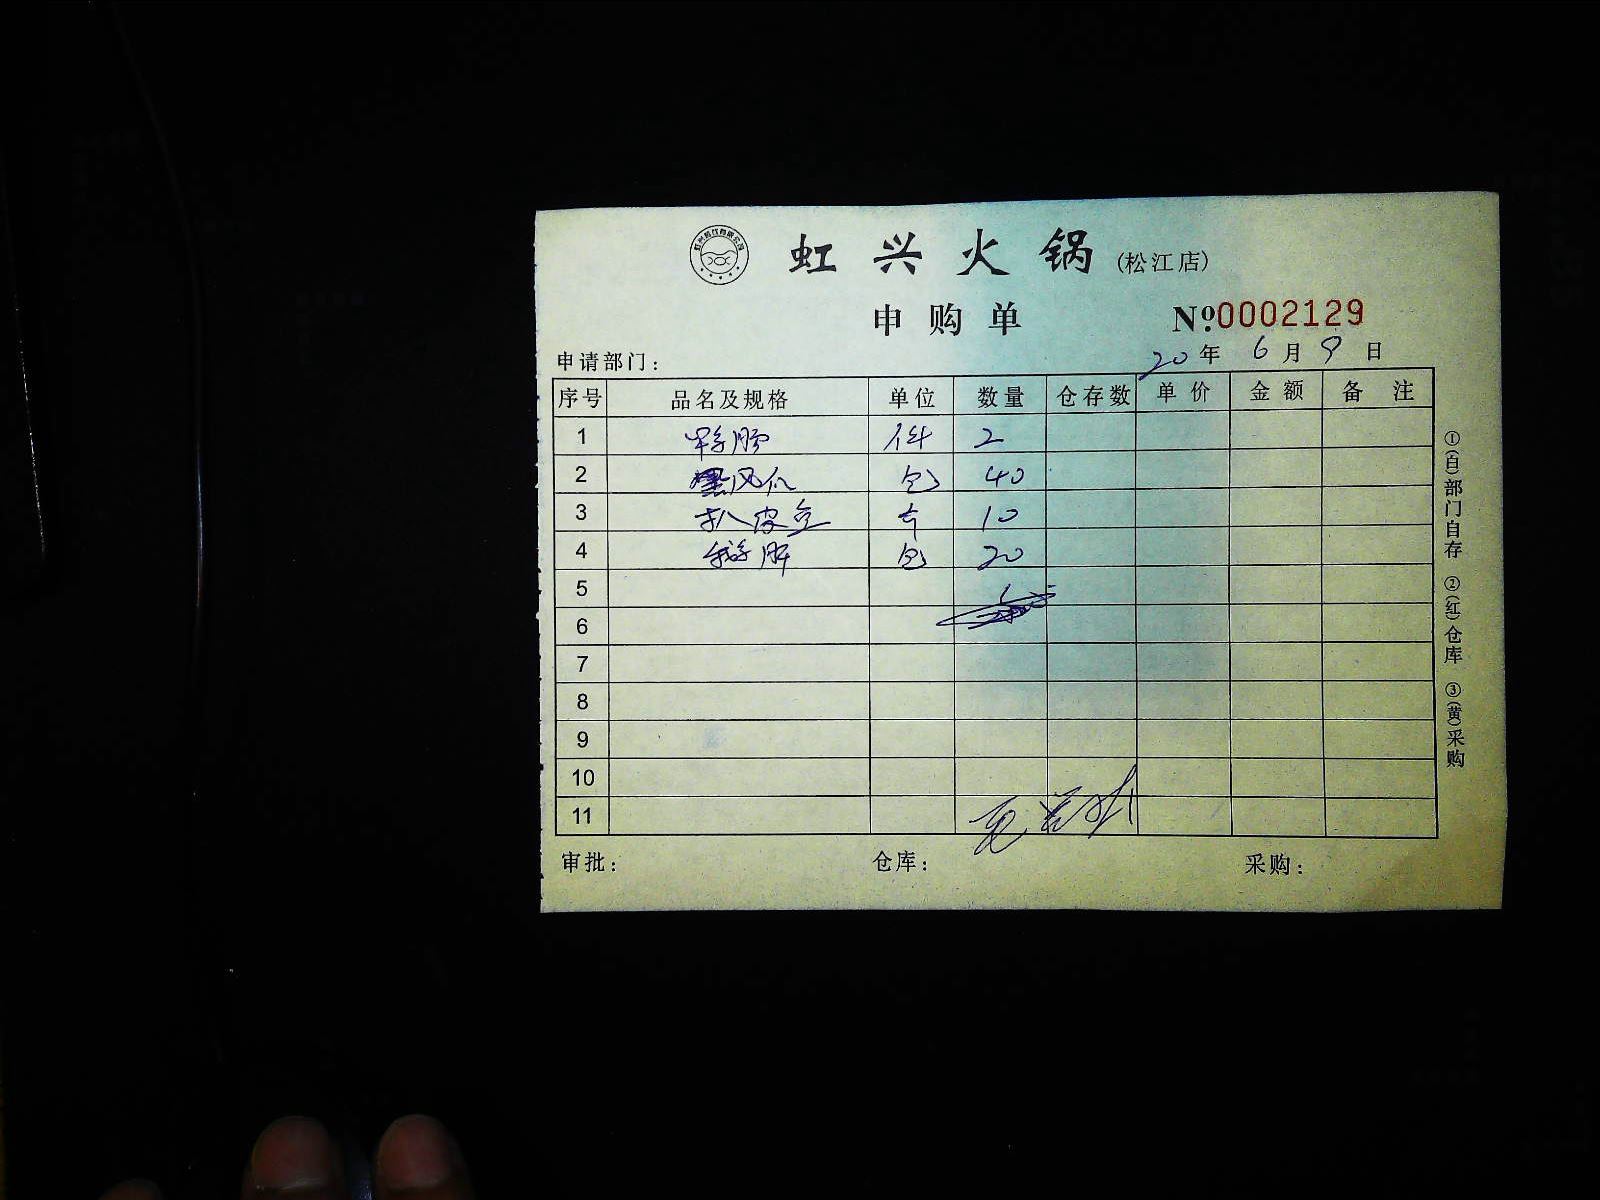 虹兴火锅(松江店)
申购单 №0002129
申请部门: 20年6月9日
序号 品名及规格 单位 数量 仓存数 单价 金额 备注
1 件 2
2 包 40
3 扒皮鱼 10
4 包 20
5
6
7
8
9
10
11
审批: 仓库: 采购:
①(白)部门自存 ②(红)仓库 ③(黄)采购